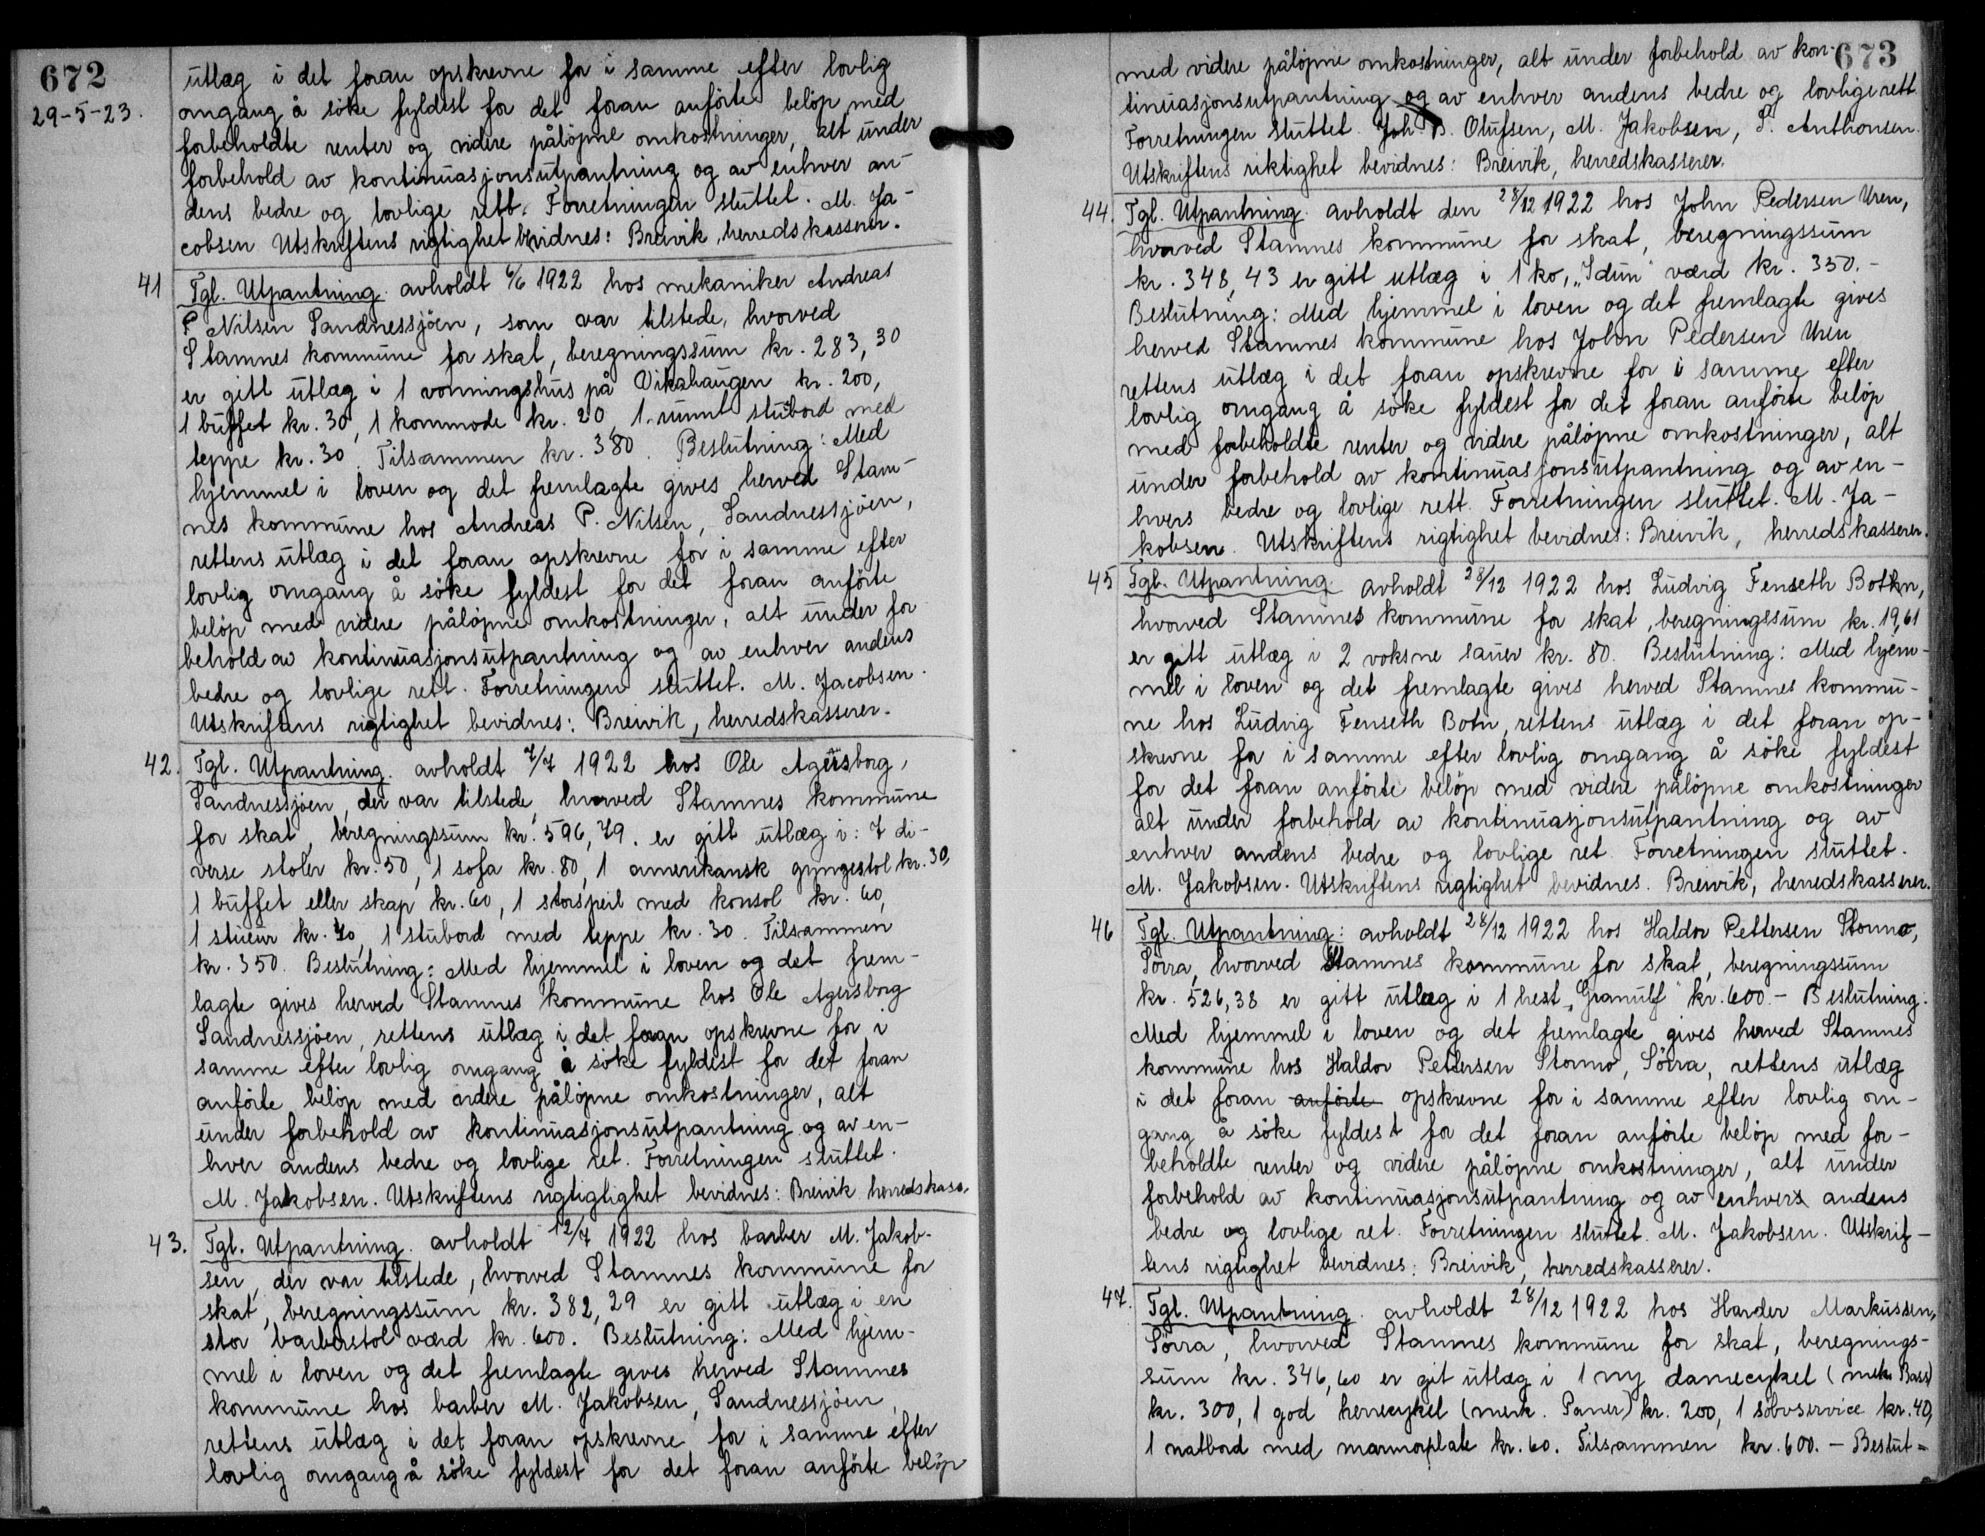 672
29-5-23.
utlæg i det foran opskrevne for i samme efter lovlig
omgang å söke fyldest for det foran anförte belöp med
forbeholdte renter og videre pålöpne omkostninger, alt under
forbehold av kontinuasjonsutpantning og av enhver an-
dens bedre og lovlige rett. Forretningen sluttet. M. Ja-
cobsen Utskriftens rigtighet bevidnes: Breivik, herredskasserer.
41 Tgl. Utpantning avholdt 6/6 1922 hos mekaniker Andreas
P Nilsen Sandnessjöen, som var tilstede, hvorved
Stamnes kommune for skat, beregningssum kr. 283,30
er gitt utlæg i 1 vonningshus på Vikahaugen kr. 200,
1 buffet kr. 30, 1 kommode kr. 20, 1 rundt stubord med
teppe kr. 30. Tilsammen kr. 380. Beslutning: Med
hjemmel i loven og det fremlagte gives herved Stam-
nes kommune hos Andreas P. Nilsen, Sandnessjöen,
rettens utlæg i det foran opskrevne for i samme efter
lovlig omgang å söke fyldest for det foran anförte
belöp med videre pålöpne omkostninger, alt under for
behold av kontinuasjonsutpantning og av enhver andens
bedre og lovlige rett. Forretningen sluttet. M. Jacobsen.
Utskriftens rigtighet bevidnes: Breivik, herredskasserer.
42. Tgl. Utpantning avholdt 7/7 1922 hos Ole Agersborg,
Sandnessjöen, der var tilstede, hvorved Stamnes kommune
for skat, beregningssum kr. 596,79. er gitt utlæg i: 7 di-
verse stoler kr. 50, 1 sofa kr. 80, 1 amerikansk gyngestol kr. 30,
1 buffet eller skap kr. 60, 1 storspeil med konsol kr. 60,
1 stueur kr. 40, 1 stubord med teppe kr. 30. Tilsammen
kr. 350. Beslutning: Med hjemmel i loven og det frem-
lagte gives herved Stamnes kommune hos Ole Agersborg
Sandnessjöen, rettens utlæg i det foran opskrevne for i
samme efter lovlig omgang å söke fyldest for det foran
anförte belöp med videre pålöpne omkostninger, alt
under forbehold av kontinuasjonsutpantning og av en-
hver andens bedre og lovlige ret. Forretningen sluttet.
M. Jakobsen. Utskriftens rigtiglighet bevidnes: Breivik herredskass.
43. Tgl. Utpantning avholdt 12/7 1922 hos barber M. Jakob-
sen, der var tilstede, hvorved Stamnes kommune for
skat, beregningssum kr. 382,29 er gitt utlæg i en
stor barberstol værd kr. 600. Beslutning: Med hjem-
mel i loven og det fremlagte gives herved Stamnes
kommune hos barber M. Jakobsen, Sandnessjöen,
rettens utlæg i det foran opskrevne for i samme efter
lovlig omgang å söke fyldest for det foran anförte belöp
673
med videre pålöpne omkostninger, alt under forbehold av kon-
tinuasjonsutpantning og av enhver andens bedre og lovlige rett
Forretningen sluttet. Joh. B. Olufsen, M. Jakobsen, S. Anthonsen.
Utskriftens riktighet bevidnes: Breivik, herredskasserer.
44. Tgl. Utpantning avholdt den 28/12 1922 hos John Pedersen Uren,
hvorved Stamnes kommune for skat, beregningssum
kr. 348,43 er gitt utlæg i 1 ko, "Idun" værd kr. 350.-
Beslutning: Med hjemmel i loven og det fremlagte gives
herved Stamnes kommune hos John Pedersen Uren
rettens utlæg i det foran opskrevne for i samme efter
lovlig omgang å söke fyldest for det foran anförte belöp
med forbeholdte renter og videre pålöpne omkostninger, alt
under forbehold av kontinuasjonsutpantning og av en-
hvers bedre og lovlige rett. Forretningen sluttet. M. Ja-
kobsen. Utskriftens rigtighet bevidnes: Breivik, herredskasserer.
45 Tgl. Utpantning avholdt 28/12 1922 hos Ludvig Fenseth Botn,
hvorved Stamnes kommune for skat, beregningssum kr. 19,61
er gitt utlæg i 2 voksne sauer kr. 80. Beslutning: Med hjem-
mel i loven og det fremlagte gives herved Stamnes kommu-
ne hos Ludvig Fenseth Botn, rettens utlæg i det foran op-
skrevne for i samme efter lovlig omgang å söke fyldest
for det foran anförte belöp med videre pålöpne omkostninger
alt under forbehold av kontinuasjonsutpantning og av
enhver andens bedre og lovlige ret. Forretningen sluttet.
M. Jakobsen. Utskriftens rigtighet bevidnes. Breivik, herredskasserer.
46 Tgl. Utpantning: avholdt 28/12 1922 hos Haldor Pettersen Stormo,
Sörra, hvorved Stamnes kommune for skat, beregningssum
kr. 526,38 er gitt utlæg i 1 hest "Granulf" kr. 600.- Beslutning:
Med hjemmel i loven og det fremlagte gives herved Stamnes
kommune hos Haldor Pettersen Stormo, Sörra, rettens utlæg
i det foran anförte opskrevne for i samme efter lovlig om-
gang å söke fyldest for det foran anförte belöp med for-
beholdte renter og videre pålöpne omkostninger, alt under
forbehold av kontinuasjonsutpantning og av enhvers andens
bedre og lovlige ret. Forretningen sluttet. M. Jakobsen. Utskrif-
tens rigtighet bevidnes: Breivik, herredskasserer.
47. Tgl. Utpantning avholdt 28/12 1922 hos Harder Markussen,
Sörra, hvorved Stamnes kommune for skat, beregnings-
sum kr. 346,60 er git utlæg i 1 ny damecykel (merk Bass)
kr. 300, 1 god herrecykel (merk. Paner) kr. 200, 1 sölvservice kr. 40,
1 natbord med marmorplate kr. 60. Tilsammen kr. 600. - Beslut=